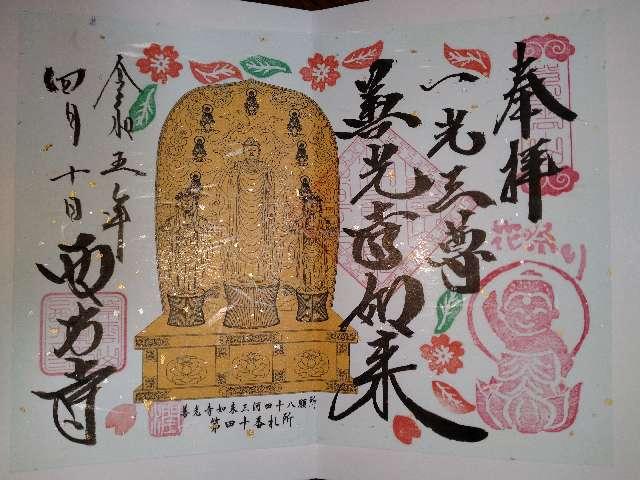 奉拝
花祭り
一光三尊
善光寺如来
善光寺如来三河四十八願所
第四十番札所
令和五年
四月十日
西方寺